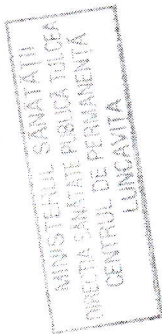 MINISTERUL SĂNĂTĂȚII
DIRECȚIA SĂNĂTATE PUBLICĂ TULCEA
CENTRUL DE PERMANENȚĂ
LUNCAVIȚA